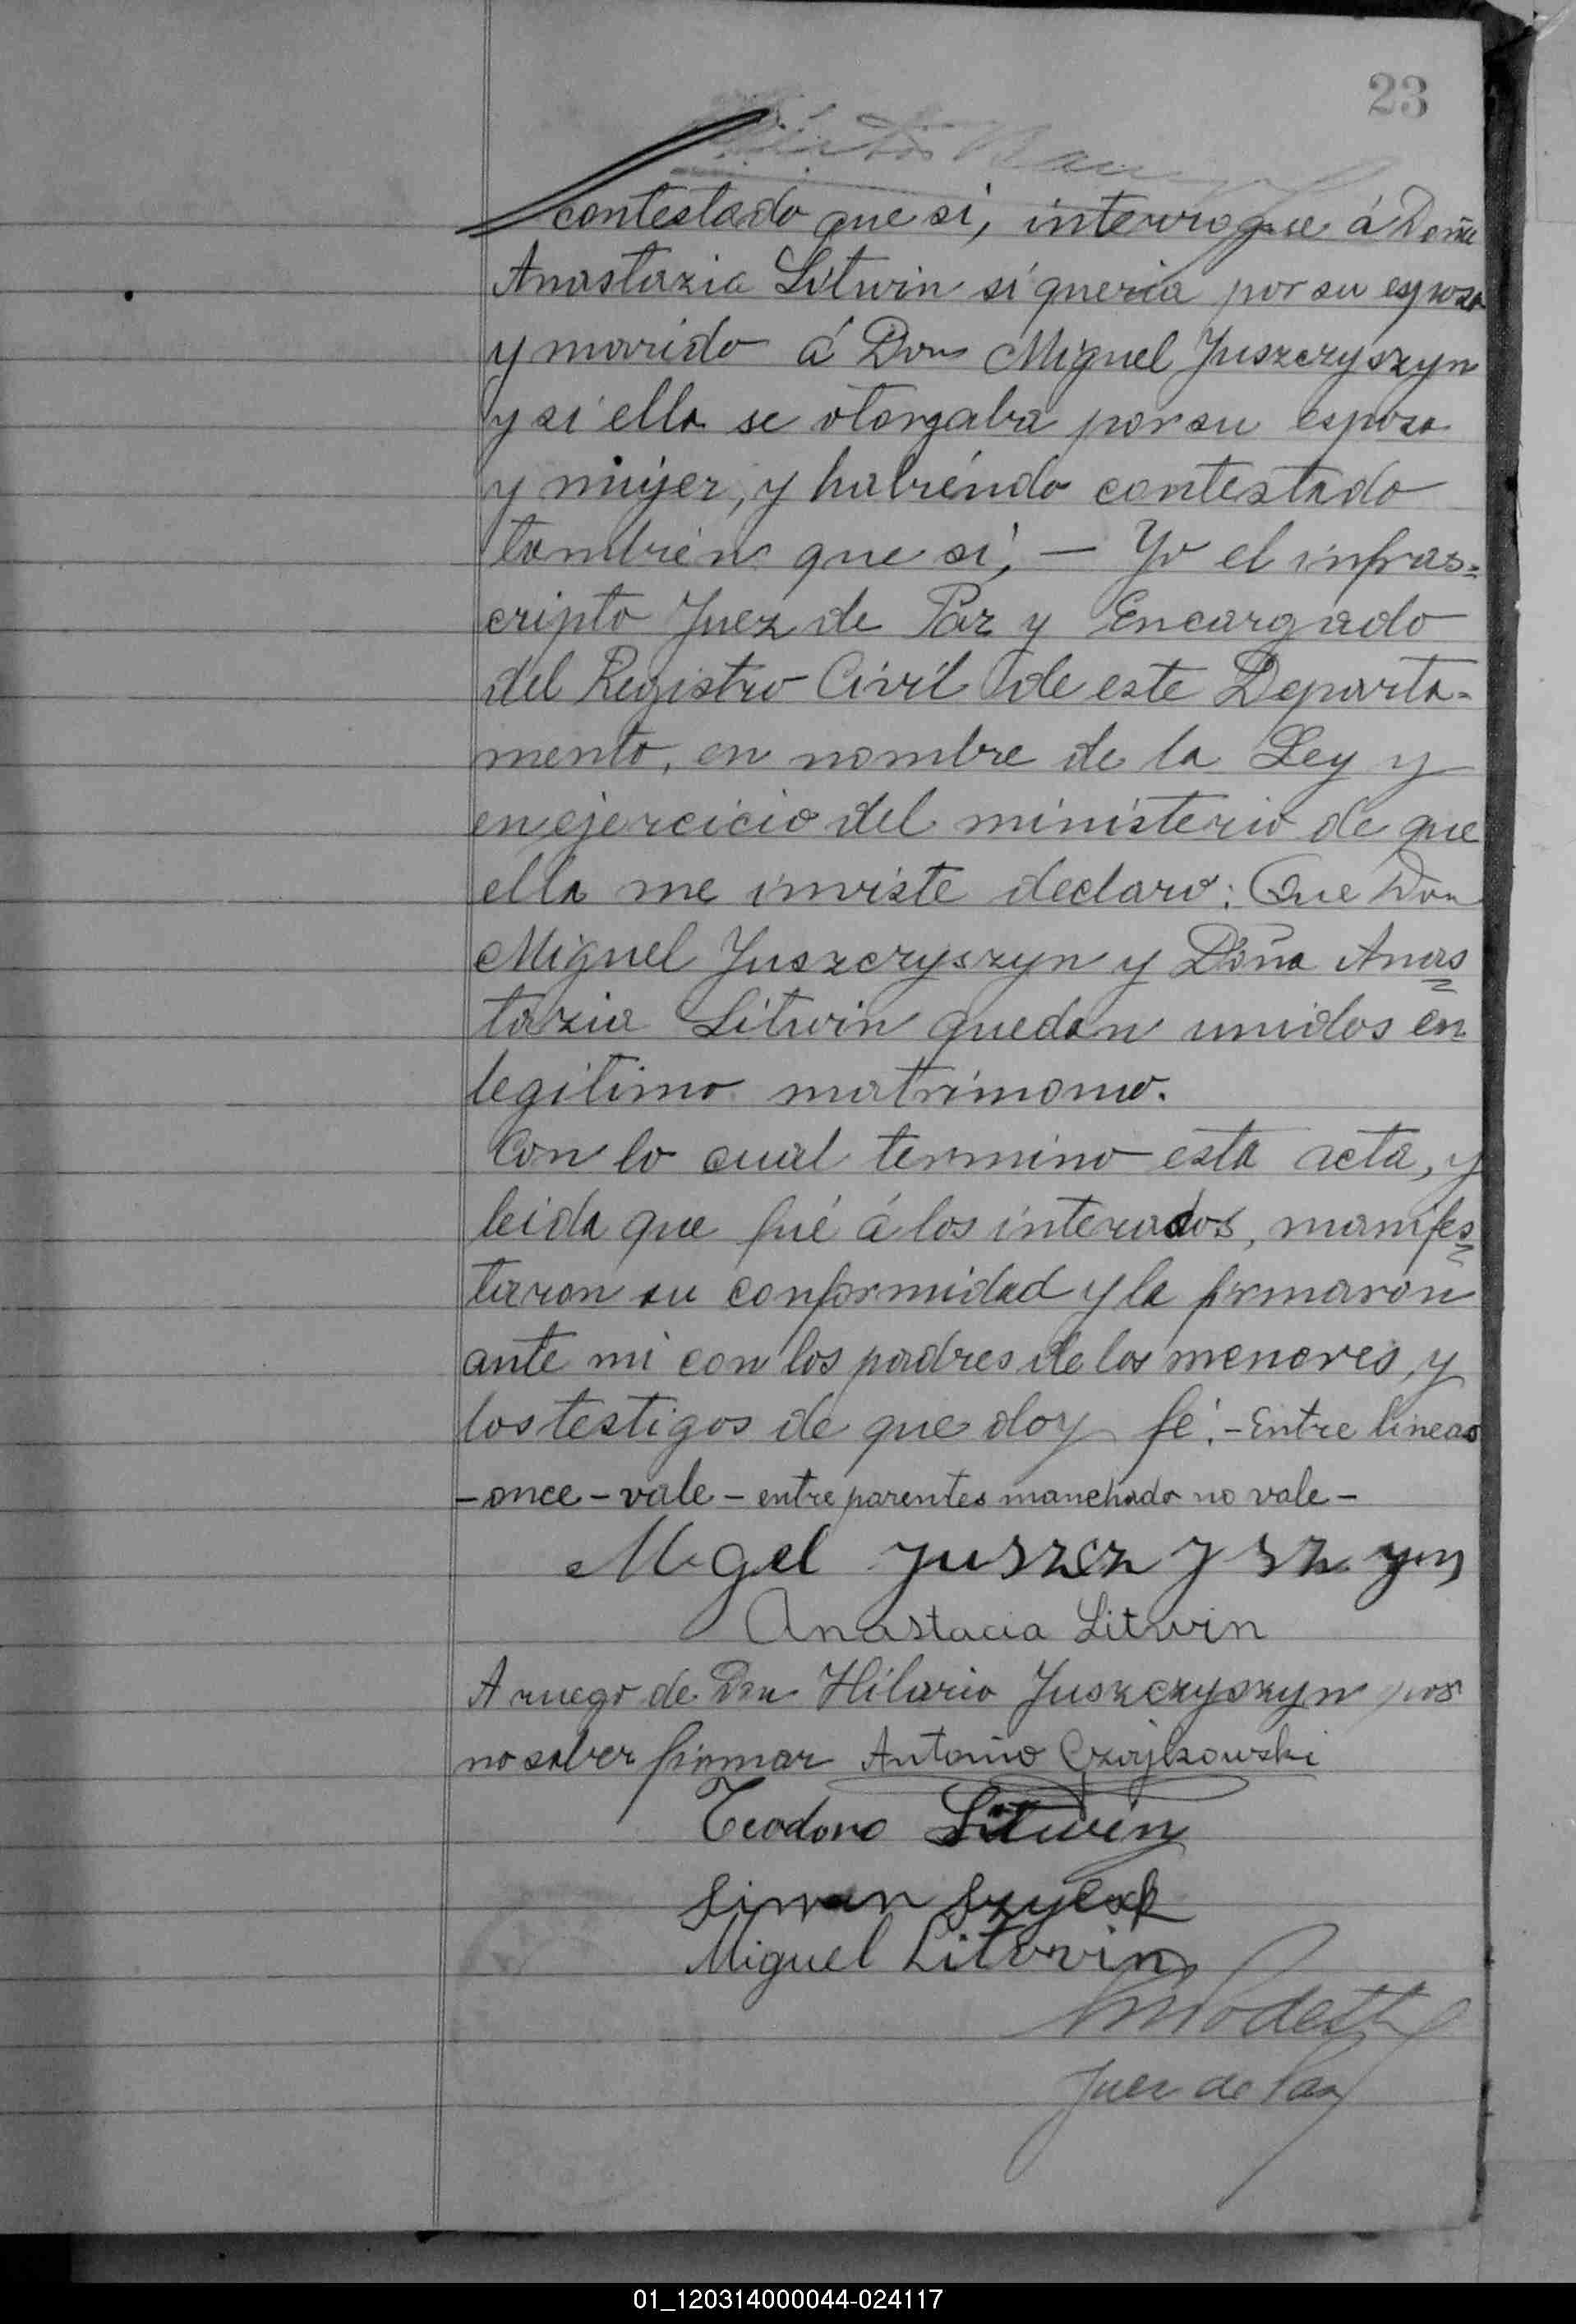 23
contestado que si, interrogue á Doña
Anastazia Litwin si queria por su esposo
y marido á Don Miguel Juszczyszyn
y si ella se otorgaba por su esposa
y mujer, y habiendo contestado
tambien que si, — Yo el infras=
cripto Juez de Paz y Encargado
del Registro Civil de este Departa-
mento, en nombre de la Ley y
en ejercicio del ministerio de que
ella me inviste declaro: Que Don
Miguel Juszczyszyn y Doña Anas=
tazia Litwin quedan unidos en
legitimo matrimonio.
Con lo cual termino esta acta, y
leida que fué á los interados, manifes=
taron su conformidad y la firmaron
ante mi con los padres de los menores, y
los testigos de que doy fé.- Entre lineas
-once-vale- entre parentes manchado no vale-
Migel Juszczyszyn
Anastacia Litwin
A ruego de Don Hilario Juszczyszyn por
no saber firmar Antonio Czajkowski
Teodoro Litwin
Miguel Litwin
Juez de Paz
01_120314000044-024117